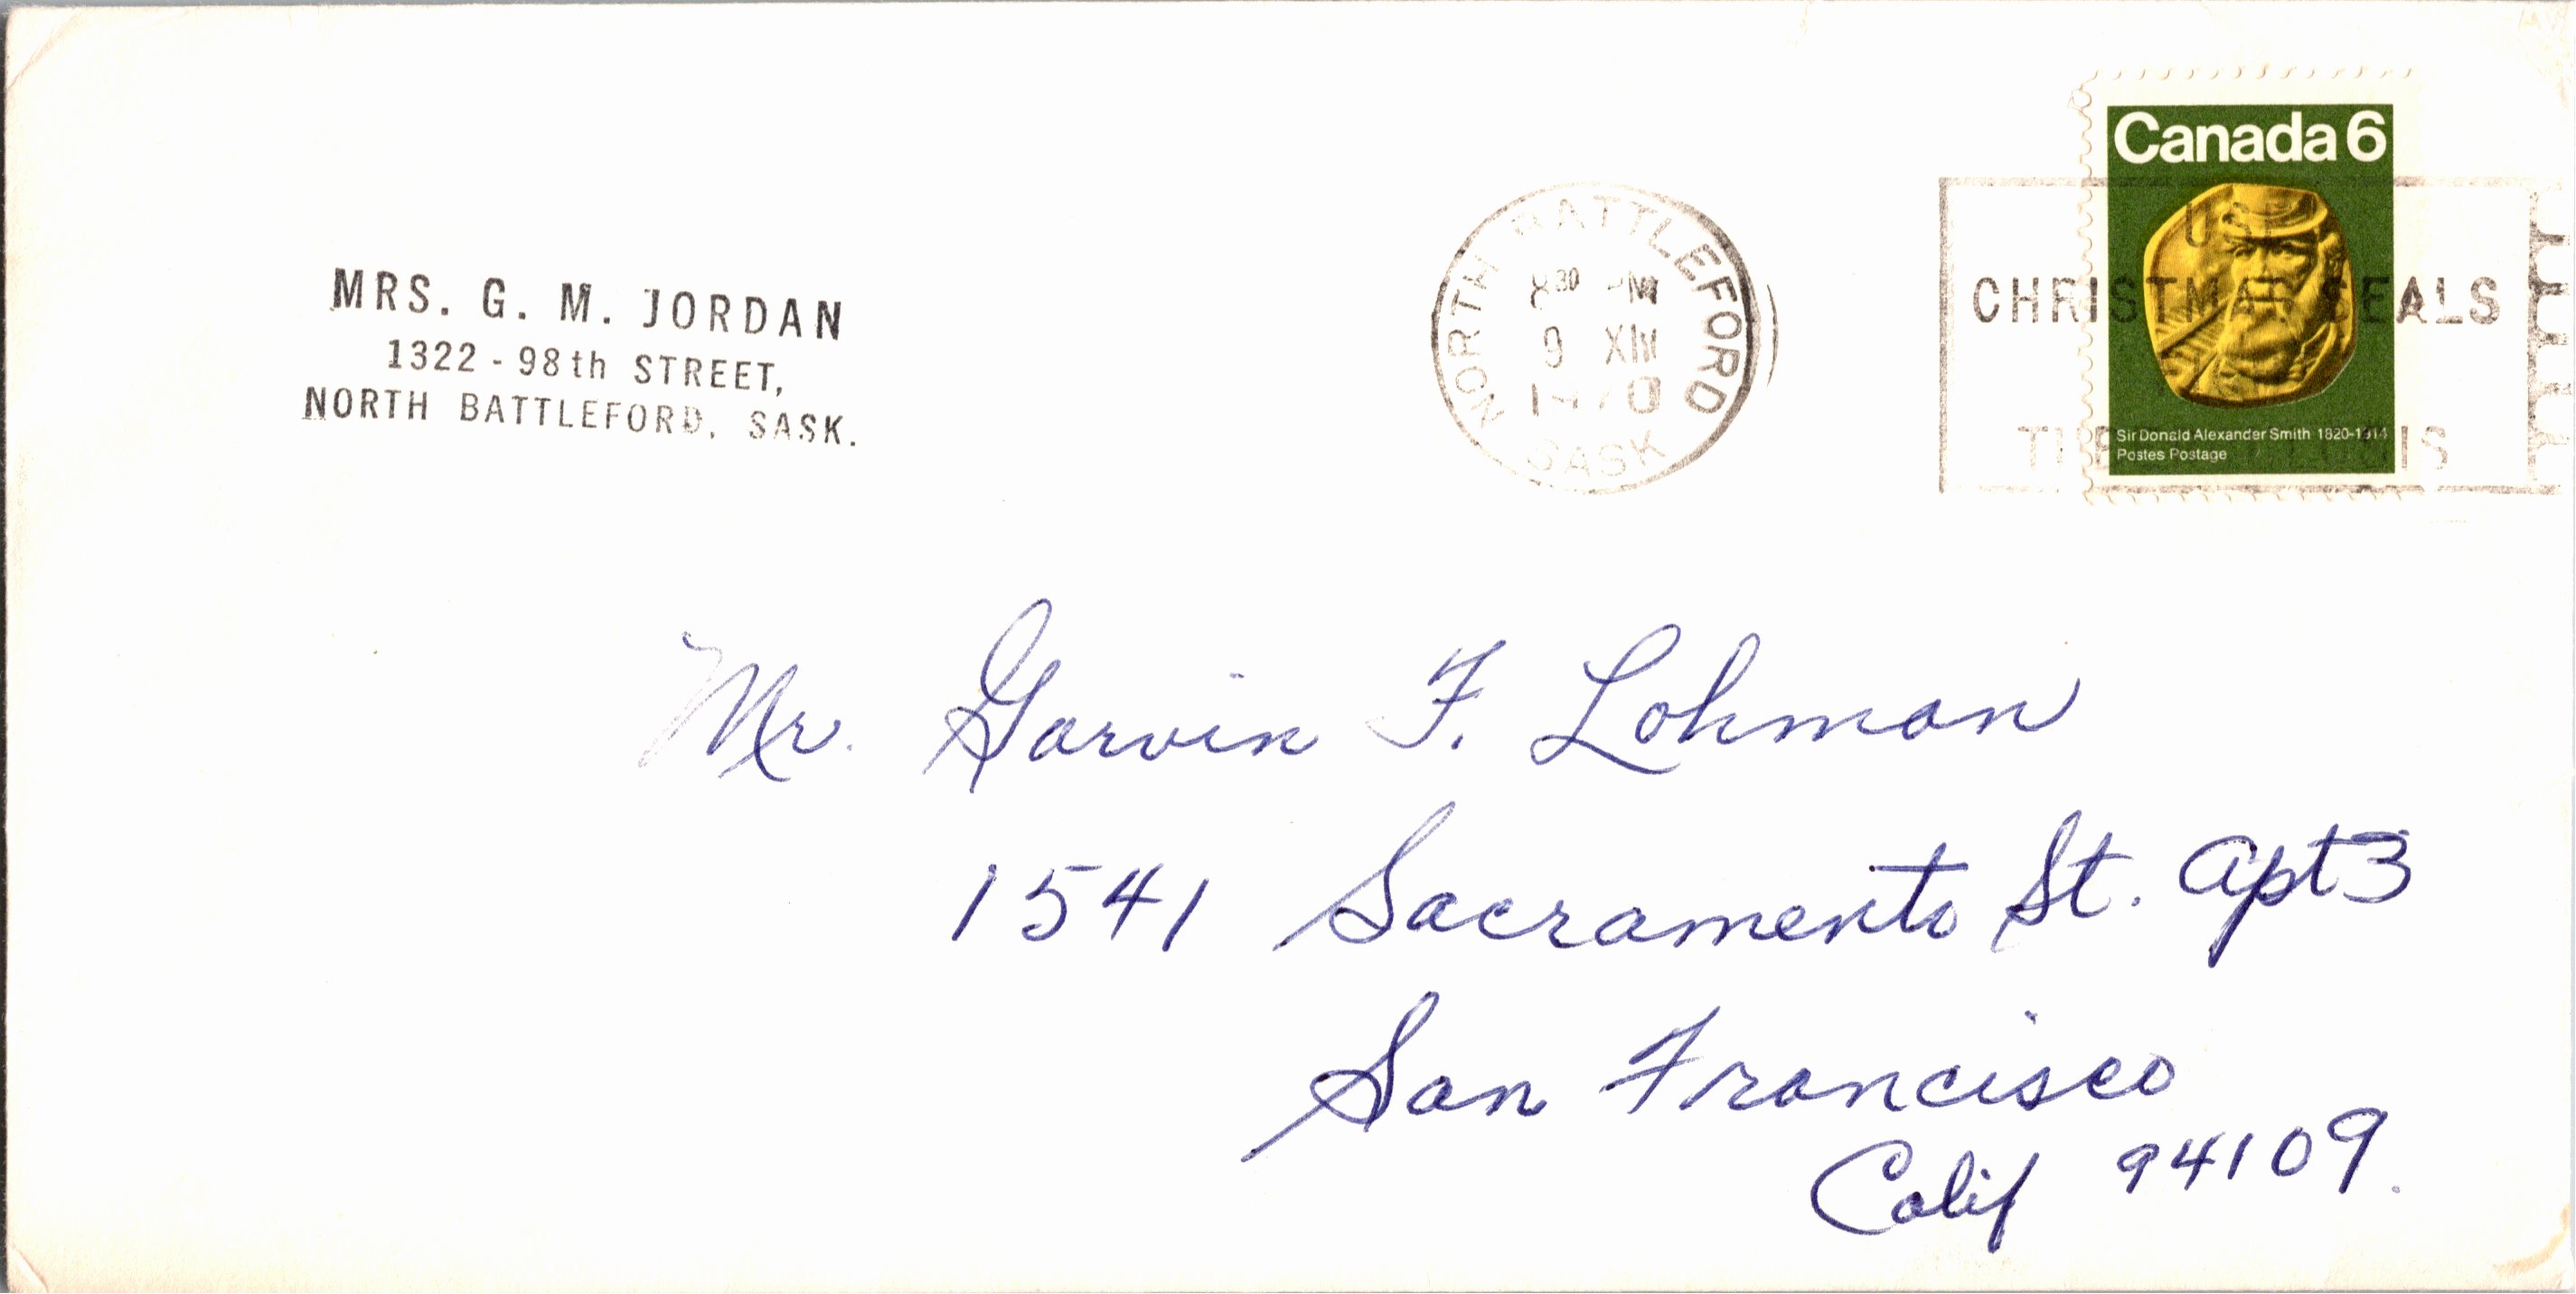 MRS. G. M. JORDAN
1322 - 98th STREET,
NORTH BATTLEFORD, SASK.
NORTH BATTLEFORD
8 30 PM
9 XII
1970
SASK
Canada 6
USE
CHRISTMAS SEALS
Sir Donald Alexander Smith 1820-1914
Postes Postage
Mr. Garvin F. Lohman
1541 Sacramento St. Apt 3
San Francisco
Calif 94109.